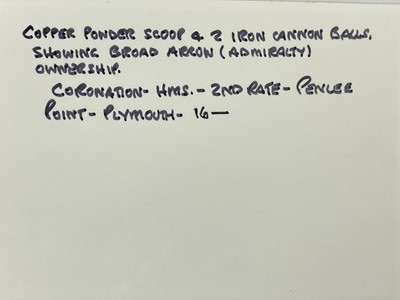 COPPER POWDER SCOOP & 2 IRON CANNON BALLS.
SHOWING BROAD ARROW (ADMIRALTY)
OWNERSHIP.
CORONATION - HMS. - 2ND RATE - PENLEE
POINT - PLYMOUTH - 16—